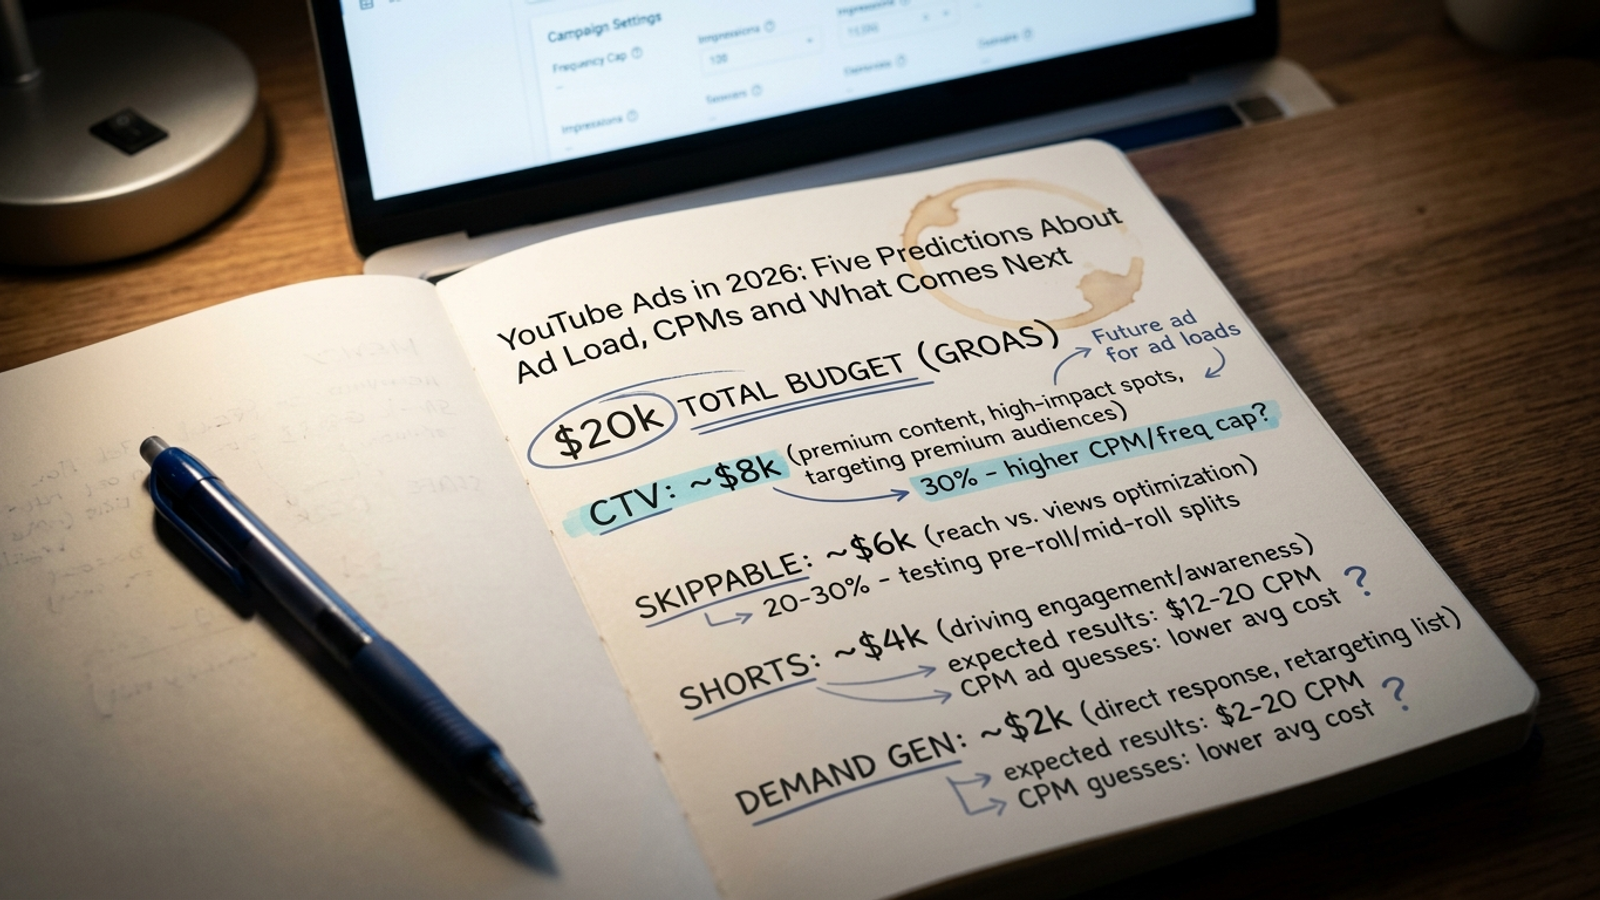 Campaign Settings
Frequency Cap
Impressions
Impressions
Impressions
YouTube Ads in 2026: Five Predictions About
Ad Load, CPMs and What Comes Next
$20k TOTAL BUDGET (GROAS)
Future ad
for ad loads
CTV: ~$8k (premium content, high-impact spots,
targeting premium audiences)
30% - higher CPM/freq cap?
SKIPPABLE: ~$6k (reach vs. views optimization)
20-30% - testing pre-roll/mid-roll splits
SHORTS: ~$4k (driving engagement/awareness)
expected results: $12-20 CPM
CPM ad guesses: lower avg cost ?
DEMAND GEN: ~$2k (direct response, retargeting list)
expected results: $2-20 CPM
CPM guesses: lower avg cost ?